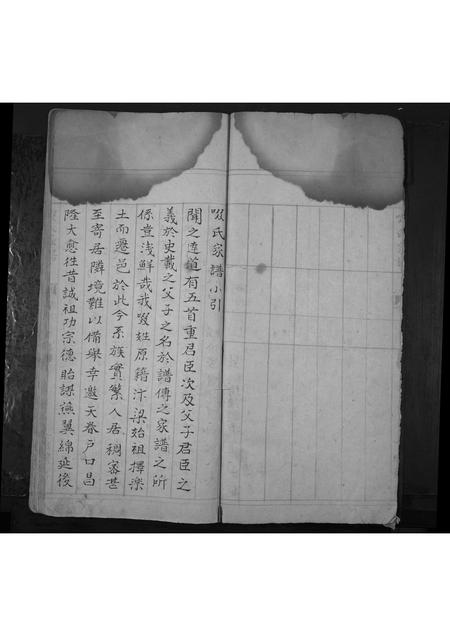 啜氏家譜小引
聞之達道有五首重君臣次及父子君臣之
義於史載之父子之名於譜傳之家譜之所
係豈淺鮮哉我啜姓原籍汴梁始祖擇樂
土而遷邑於此今系族實繁人居稠密甚
至寄居隣境難以備舉幸邀天眷戶口昌
隆大愈徃昔誠祖功宗德貽謀燕翼綿延後